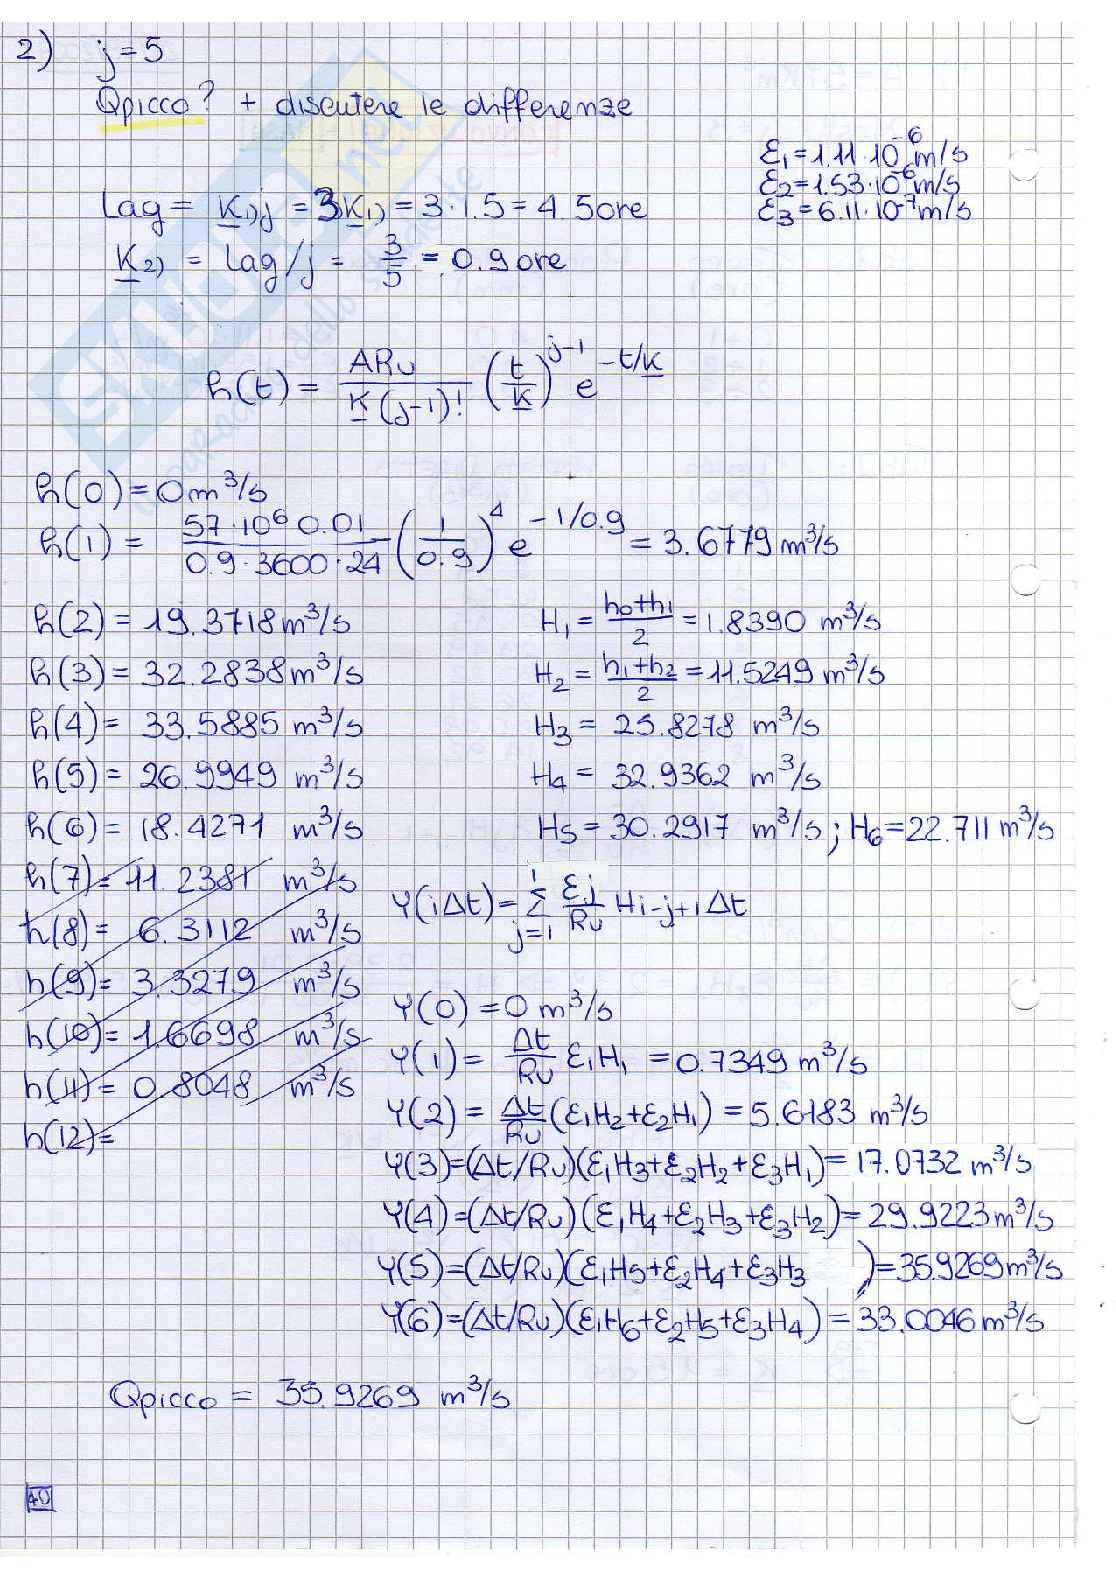 2) j=5
Qpicco? + discutere le differenze
ε1=1.11·10^-6 m/s
ε2=1.53·10^-6 m/s
ε3=6.11·10^-7 m/s
Lag = K1) j = 3K1) = 3·1.5 = 4.5 ore
K2) = lag/j = 3/5 = 0.9 ore
h(t) = ARu/(K(j-1)!) (t/K)^(j-1) e^(-t/K)
h(0) = 0 m³/s
h(1) = (57·10^6 0.01)/(0.9·3600·24) (1/0.9)^4 e^(-1/0.9) = 3.6779 m³/s
h(2) = 19.3718 m³/s H1 = (h0+h1)/2 = 1.8390 m³/s
h(3) = 32.2838 m³/s H2 = (h1+h2)/2 = 11.5249 m³/s
h(4) = 33.5885 m³/s H3 = 25.8278 m³/s
h(5) = 26.9949 m³/s H4 = 32.9362 m³/s
h(6) = 18.4271 m³/s H5 = 30.2917 m³/s ; H6 = 22.711 m³/s
h(7) = 11.2381 m³/s
h(8) = 6.3112 m³/s
h(9) = 3.3279 m³/s
h(10) = 1.6698 m³/s
h(11) = 0.8048 m³/s
h(12) =
Y(iΔt) = Σ_{j=1}^{i} εj/Ru Hi-j+1 Δt
Y(0) = 0 m³/s
Y(1) = Δt/Ru ε1H1 = 0.7349 m³/s
Y(2) = Δt/Ru (ε1H2+ε2H1) = 5.6183 m³/s
Y(3) = (Δt/Ru)(ε1H3+ε2H2+ε3H1) = 17.0732 m³/s
Y(4) = (Δt/Ru)(ε1H4+ε2H3+ε3H2) = 29.9223 m³/s
Y(5) = (Δt/Ru)(ε1H5+ε2H4+ε3H3) = 35.9269 m³/s
Y(6) = (Δt/Ru)(ε1H6+ε2H5+ε3H4) = 33.0046 m³/s
Qpicco = 35.9269 m³/s
40